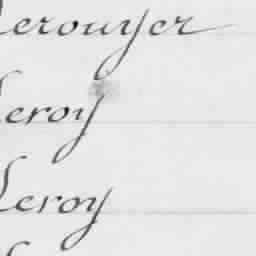 Lerouyer
Leroy
Leroy